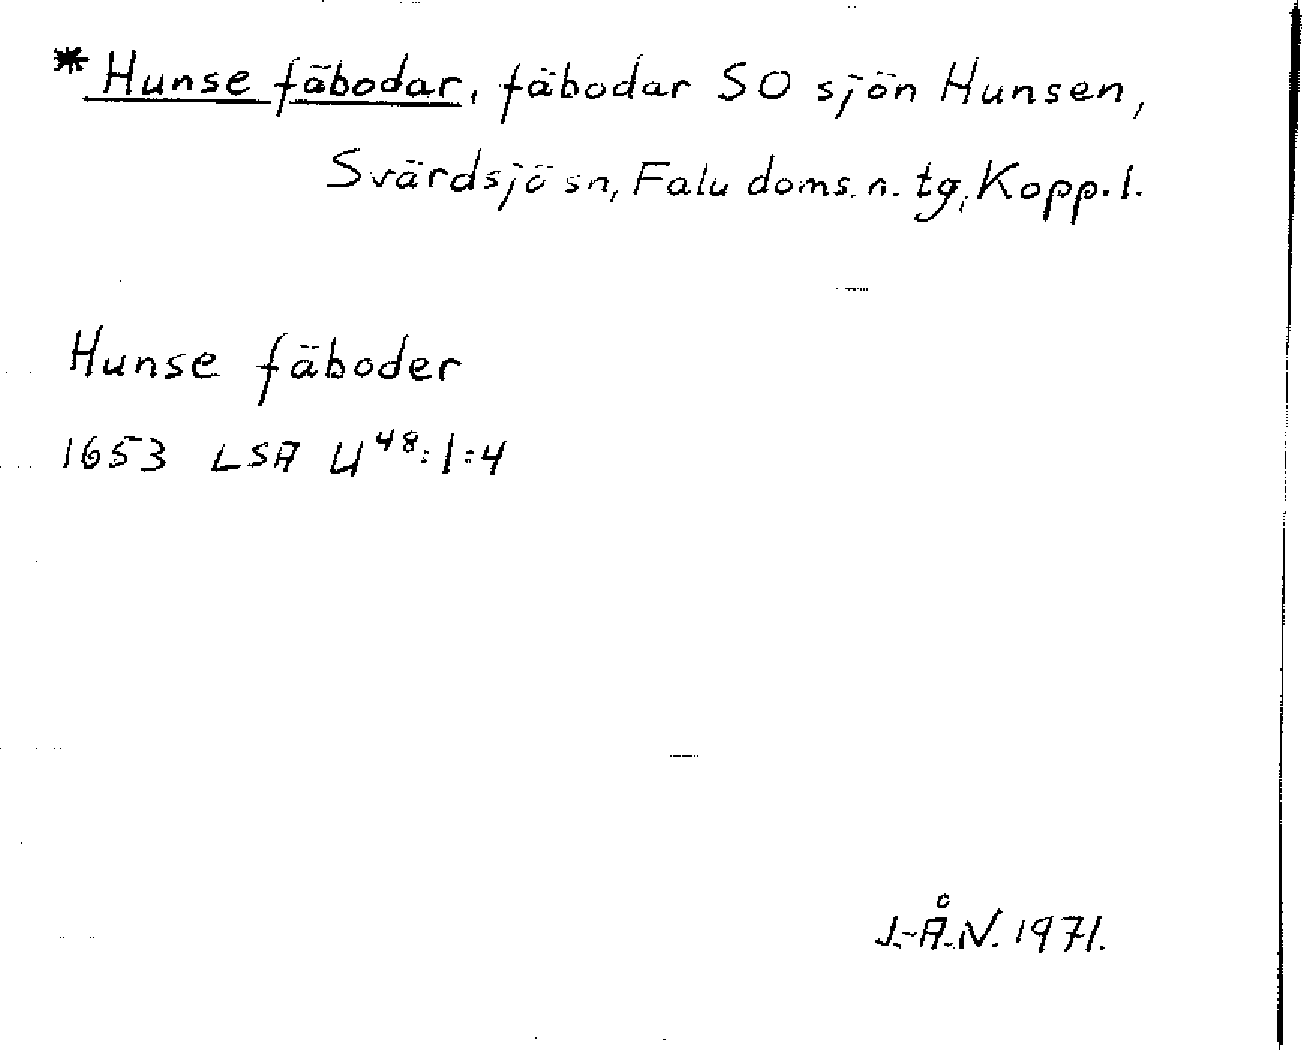 * Hunse fäbodar, fäbodar SO sjön Hunsen,
Svärdsjö sn, Falu doms. n. tg, Kopp. l.
Hunse fäboder
1653 LSA U 48:1:4
J.-Å.N. 1971.